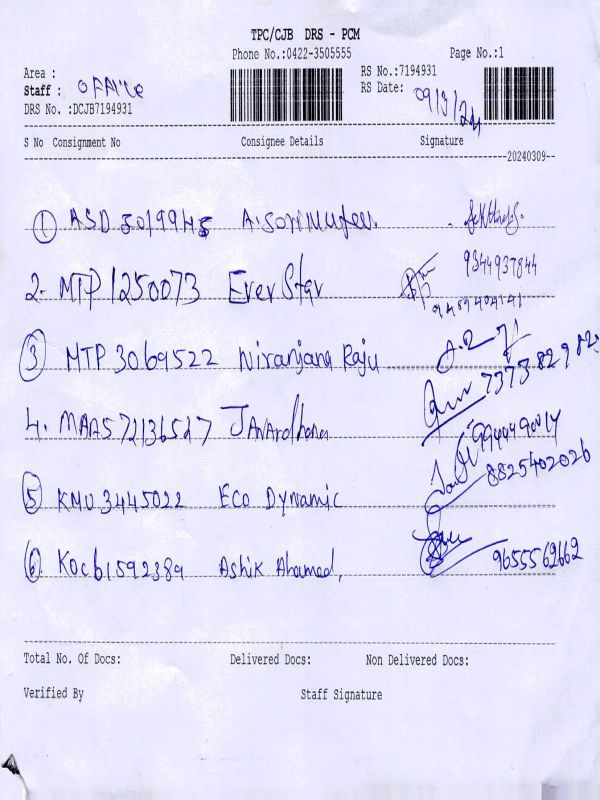 TPC/CJB DRS - PCM
Phone No.:0422-3505555 Page No.:1
Area : RS No.:7194931
Staff : OFFICE RS Date: 09/3/24
DRS No. :DCJB7194931
S No Consignment No Consignee Details Signature
20240309
1 ASD 3019945 A.
2. MTP 1250073 Ever Star 9344937844
3 MTP 3069522 Niranjana Raju
7373 829 829
4. MAA572136527 JAnardhana 9944490014
8825402026
5 KMU 3445022 Eco Dynamic
6 KOC61592389 Ashik Ahamed, 9655562662
Total No. Of Docs: Delivered Docs: Non Delivered Docs:
Verified By Staff Signature